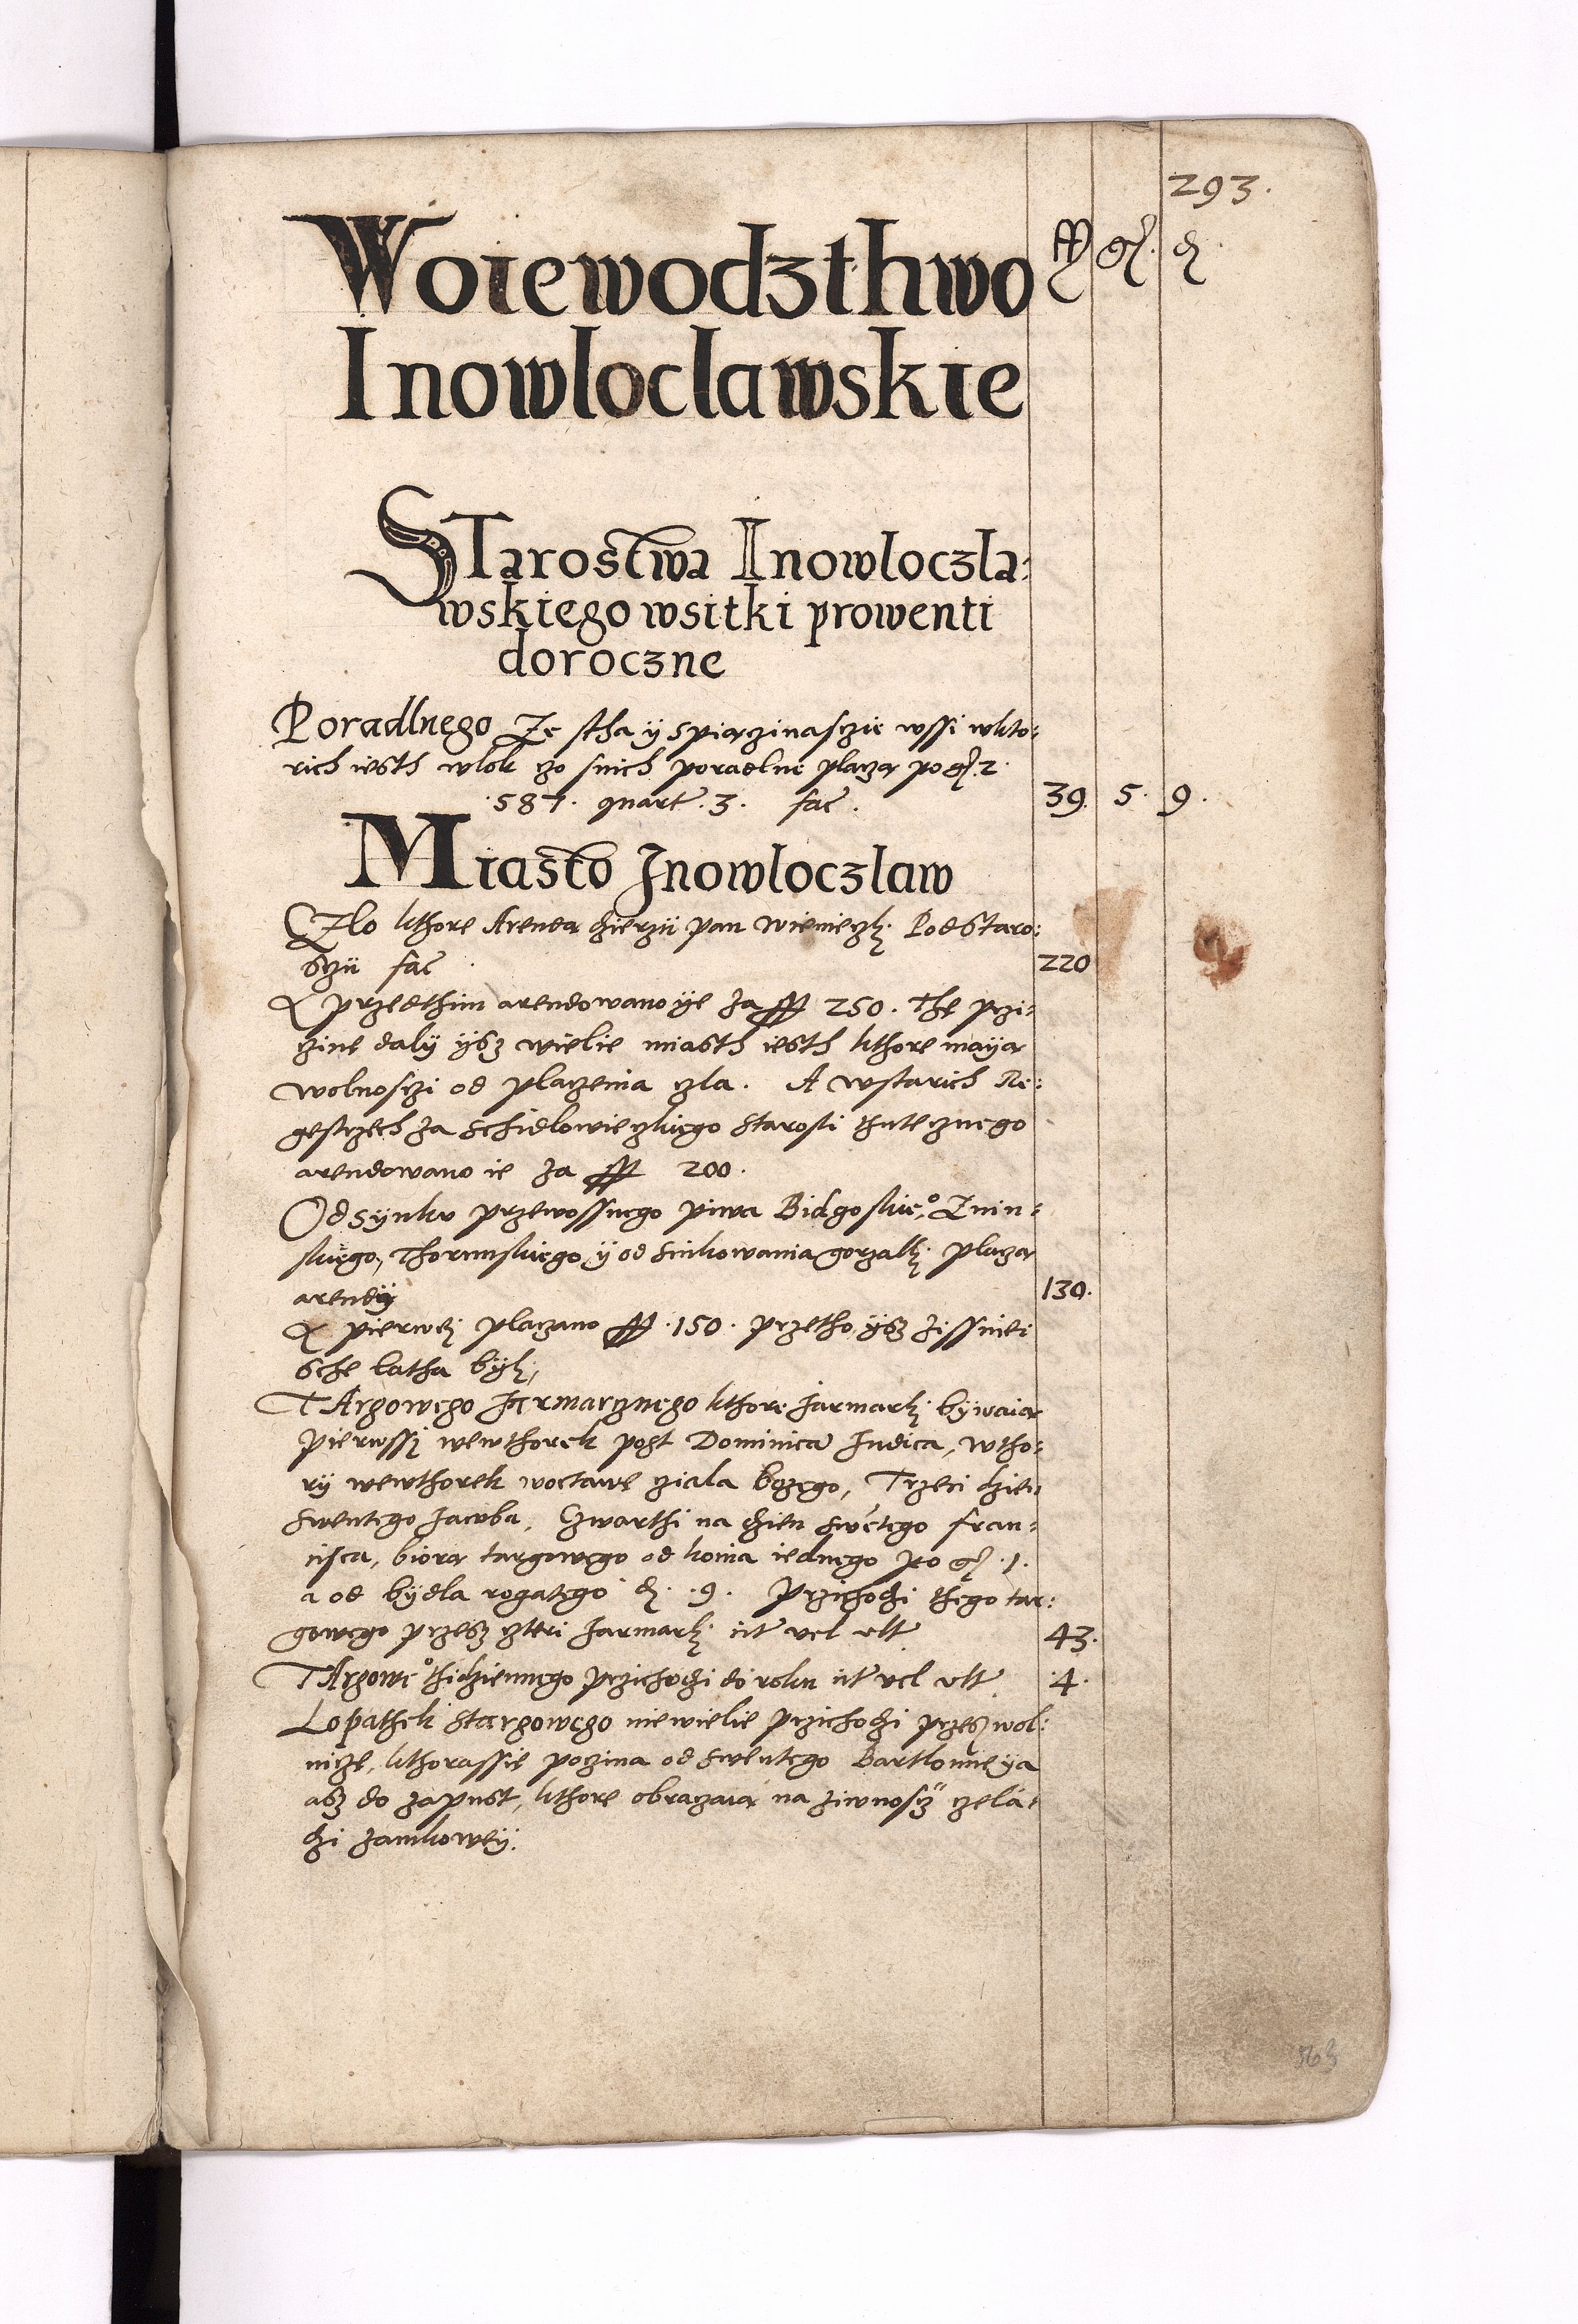 293.
Woiewodzthwo
Inowloclawskie
Starostwa Inowloczla:
wskiego wsitki prowenti
doroczne
Poradlnego Ze stha y spiączinasczie wssi wkto:
rich iesth wlok czo snich poradlne placzą po gr. 2.
.587. quart. 3. fac. 39. 5. 9.
Miasto Inowloczlaw
Czlo kthore Arendą dzierzii pan Podstaro:
sczii fac. 220
przedthim arendowano ye za 250. The przi:
czine daly ysz wielie miasth iesth kthore mayą
wolnosczi od placzenia czla. A wstarich Re:
gestrzech za Schidlowieczkiego Starosti thutecznego
arendowano ie za 200.
Od synku przewossnego piwa Bidgoskie°, Znin:
skiego, Thorunskiego, y od sinkowania gorzalki placzą
arendy 130.
pierwei placzano .150. przetho ysz zissniei
sche latha byly,
Targowego Jarmarcznego kthore Jarmarki bywaią
pierwssy wewthorek post Dominica Judica, wtho:
ry wewthorek woctawe cziala bozego, Trzeci dzien
Swentego Jacuba, Czwarthi na dzien Swetego fran:
cisca, biorą targowego od konia iednego po gr. 1.
a od bydla rogatego d. 9. Przichodzi thego tar:
gowego przesz czteri Jarmarki ut vel ult. 43.
Targowe° thidziennego przichodzi do roku ut vel ult. 4.
Lopathek stargowego niewielie przichodzi przesz wol:
nicze, kthorassie poczina od Swentego Bartlomieya
asz do zapust, kthore obraczaią na ziwnoscz czela:
dzi zamkowey.
563